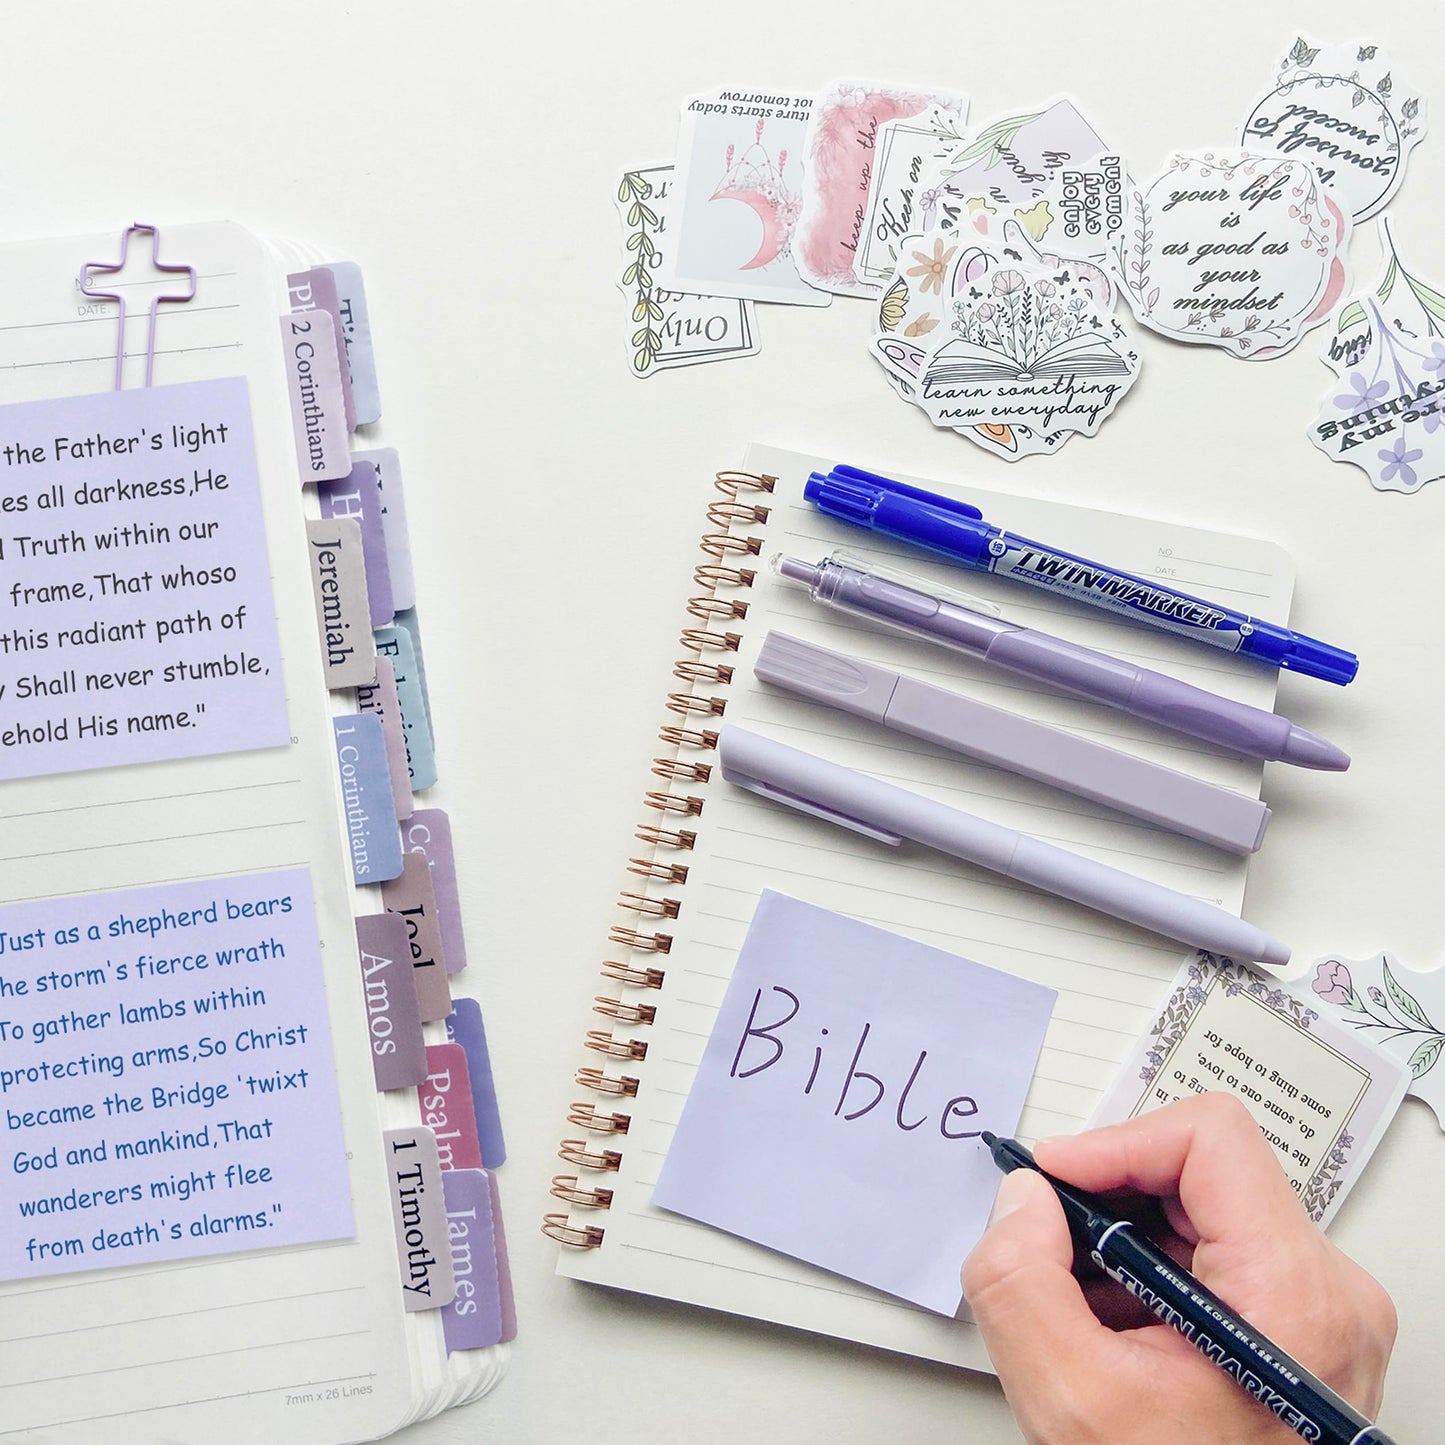 NO.
DATE:
the Father's light
all darkness,He
Truth within our
frame,That whoso
this radiant path of
Shall never stumble,
His name."
10
Just as a shepherd bears
the storm's fierce wrath
To gather lambs within
protecting arms,So Christ
became the Bridge 'twixt
God and mankind,That
wanderers might flee
from death's alarms."
20
7mm x 26 Lines
Titus
2 Corinthians
Jeremiah
1 Corinthians
Joel
Amos
Psalm
1 Timothy
James
starts today
not tomorrow
Only
keep up the
Keep on
enjoy
every
moment
yourself to
succeed
your life
is
as good as
your
mindset
learn something
new everyday
NO
DATE
TWIN MARKER
10
Bible
some thing to hope for
do, some one to love,
TWIN MARKER